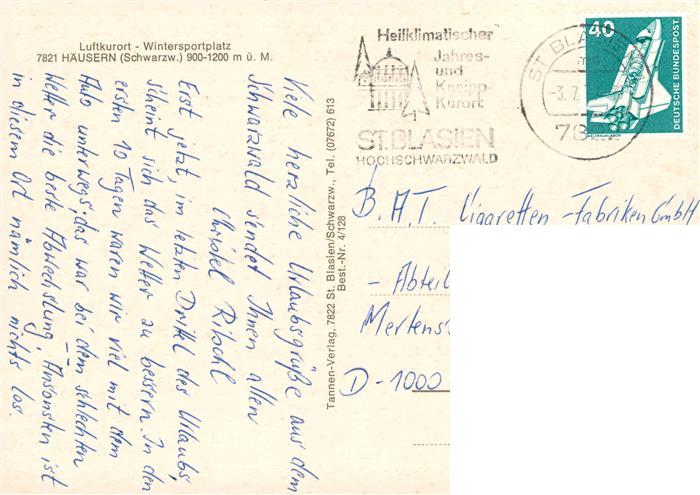 Luftkurort - Wintersportplatz
7821 HÄUSERN (Schwarzw.) 900-1200 m ü. M.
Viele herzliche Urlaubsgrüße aus dem
Schwarzwald sendet Ihnen allen
Christel Ritschl
Erst jetzt, im letzten Drittel des Urlaubs,
scheint sich das Wetter zu bessern. In den
ersten 10 Tagen waren wir viel mit dem
Auto unterwegs, das war bei dem schlechten
Wetter die beste Abwechslung. Ansonsten ist
in diesem Ort nämlich nichts los.
Tannen-Verlag, 7822 St. Blasien/Schwarzw., Tel. (07672) 613
Best.-Nr. 4/128
Heilklimatischer
Jahres-
und
Kneipp-
Kurort
ST. BLASIEN
HOCHSCHWARZWALD
ST. BLASIEN
-3.7.
782
40
DEUTSCHE BUNDESPOST
B.A.T. Cigaretten-Fabriken GmbH
- Abteil
Mertens
D-1000